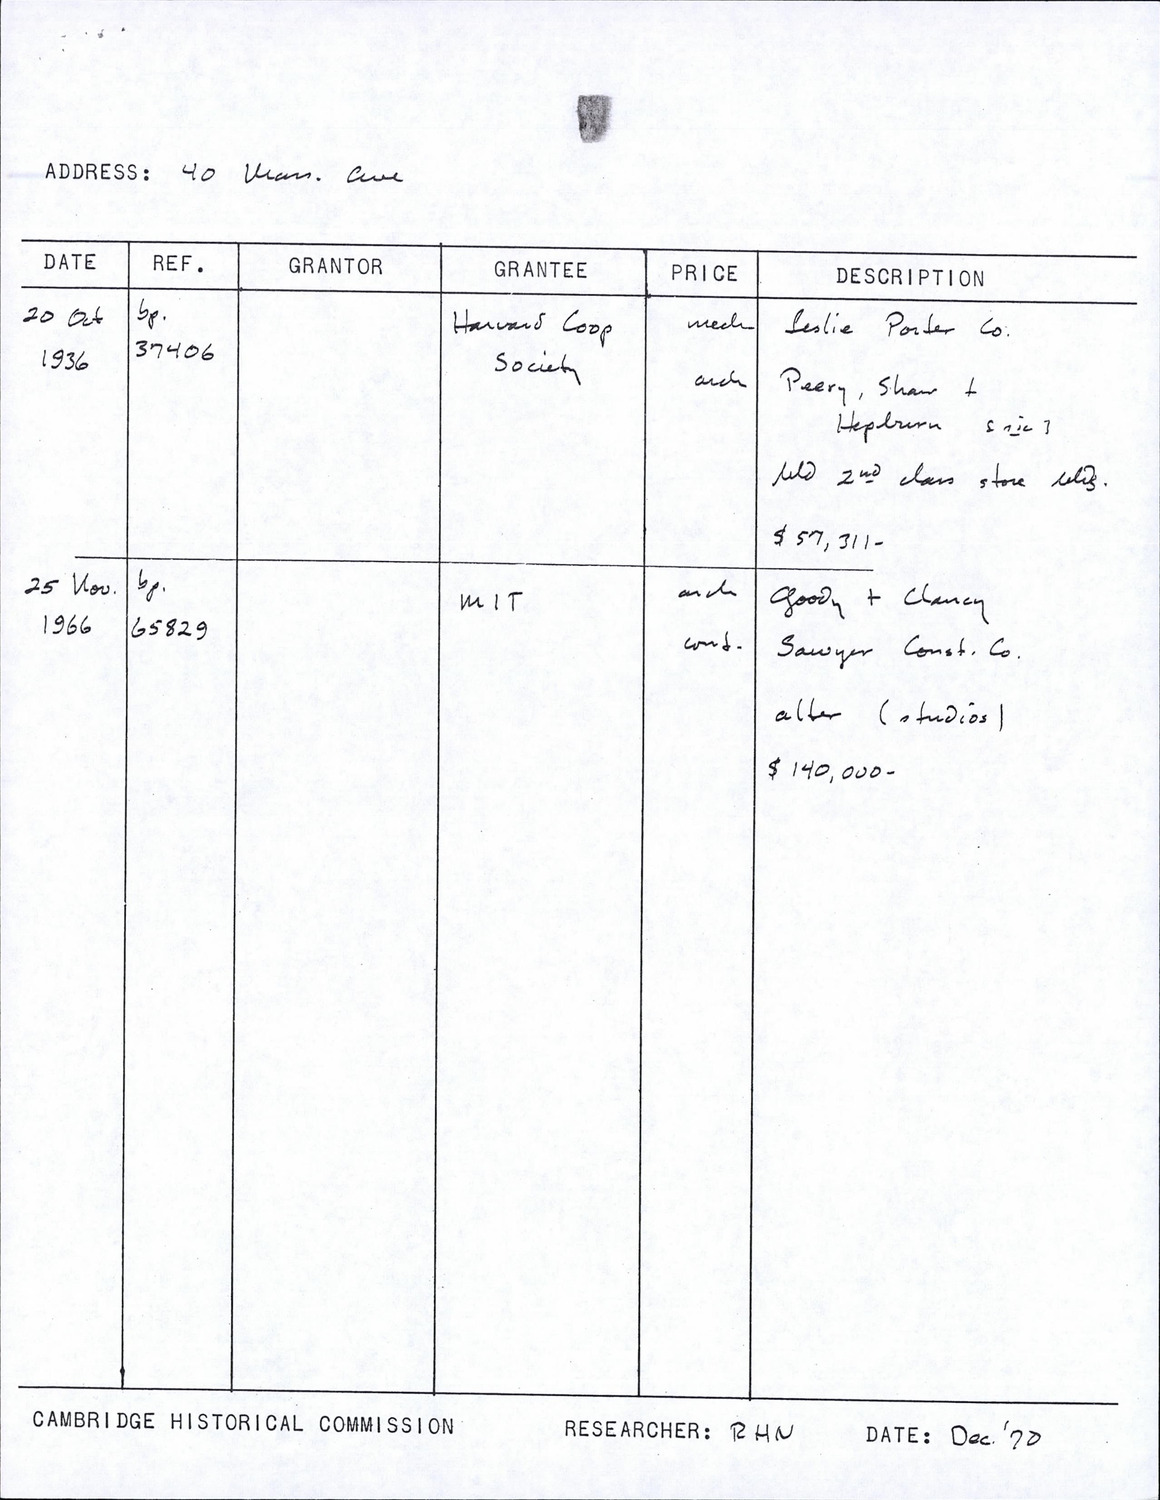 ADDRESS: 40 Mass. Ave
DATE REF. GRANTOR GRANTEE PRICE DESCRIPTION
20 Oct bp. Harvard Coop mech Leslie Porter Co.
1936 37406 Society
arch Peery, Shaw +
Hepburn [sic]
bld 2nd class store bldg.
$57,311-
25 Nov. bp. MIT arch Goody + Clancy
1966 65829 cont. Sawyer Const. Co.
alter (studios)
$140,000-
CAMBRIDGE HISTORICAL COMMISSION RESEARCHER: RHN DATE: Dec. '70